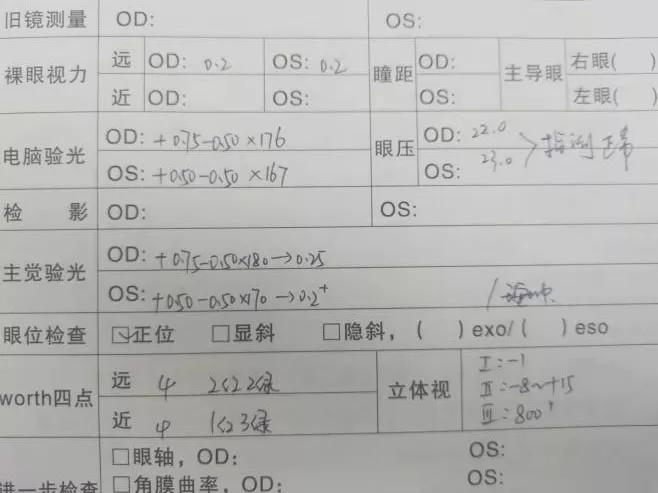 旧镜测量 OD: OS:
裸眼视力 远 OD: 0.2 OS: 0.2 瞳距 OD: 主导眼 右眼( )
近 OD: OS: OS: 左眼( )
电脑验光 OD: +0.75-0.50×176 眼压 OD: 22.0 指测正常
OS: +0.50-0.50×167 OS: 23.0
检 影 OD: OS:
主觉验光 OD: +0.75-0.50×180→0.25
OS: +0.50-0.50×170→0.2+
眼位检查 ☑正位 □显斜 □隐斜, ( ) exo/ ( ) eso
worth四点 远 4 2红2绿 立体视 I: -1
II: -8~+15
近 4 1红3绿 III: 800"
进一步检查 □眼轴, OD: OS:
□角膜曲率, OD: OS: